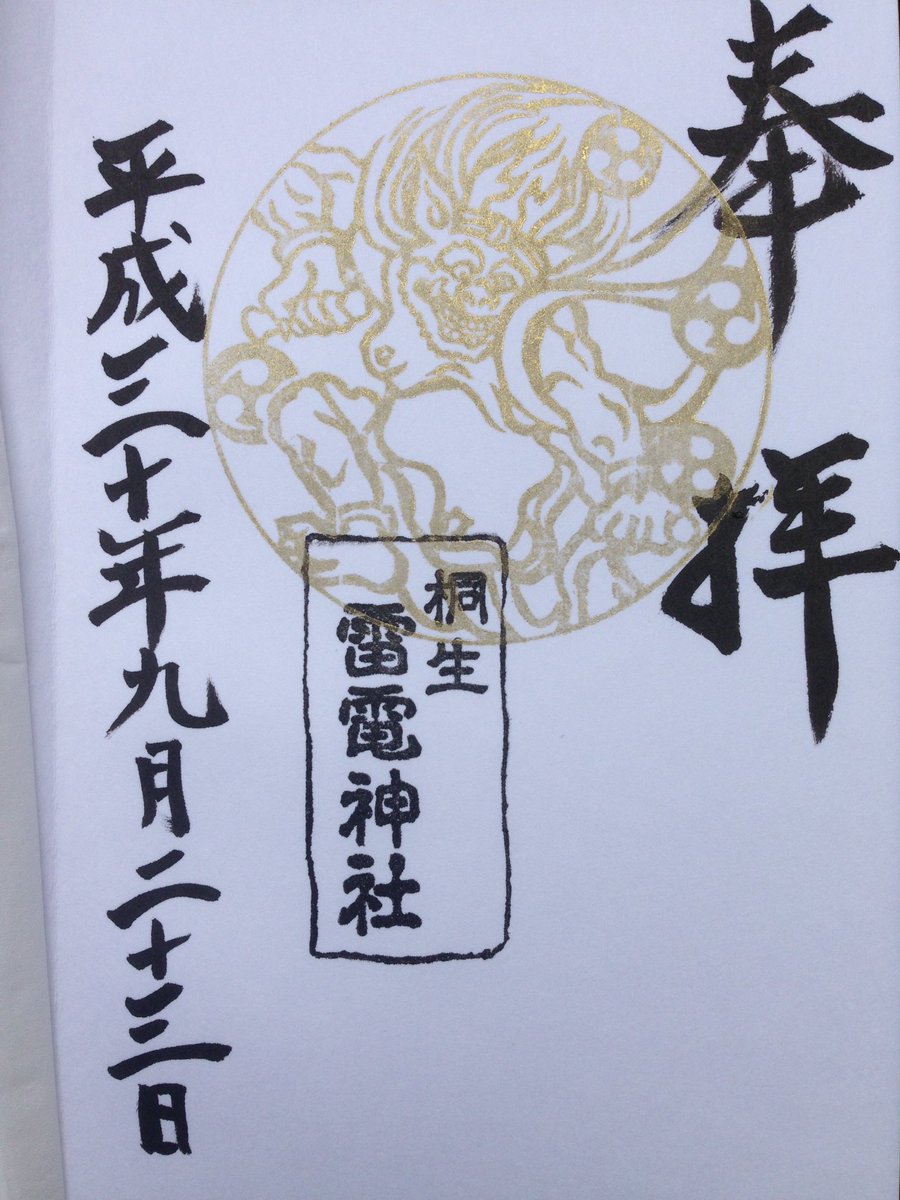 奉拝
桐生
雷電神社
平成三十年九月二十三日